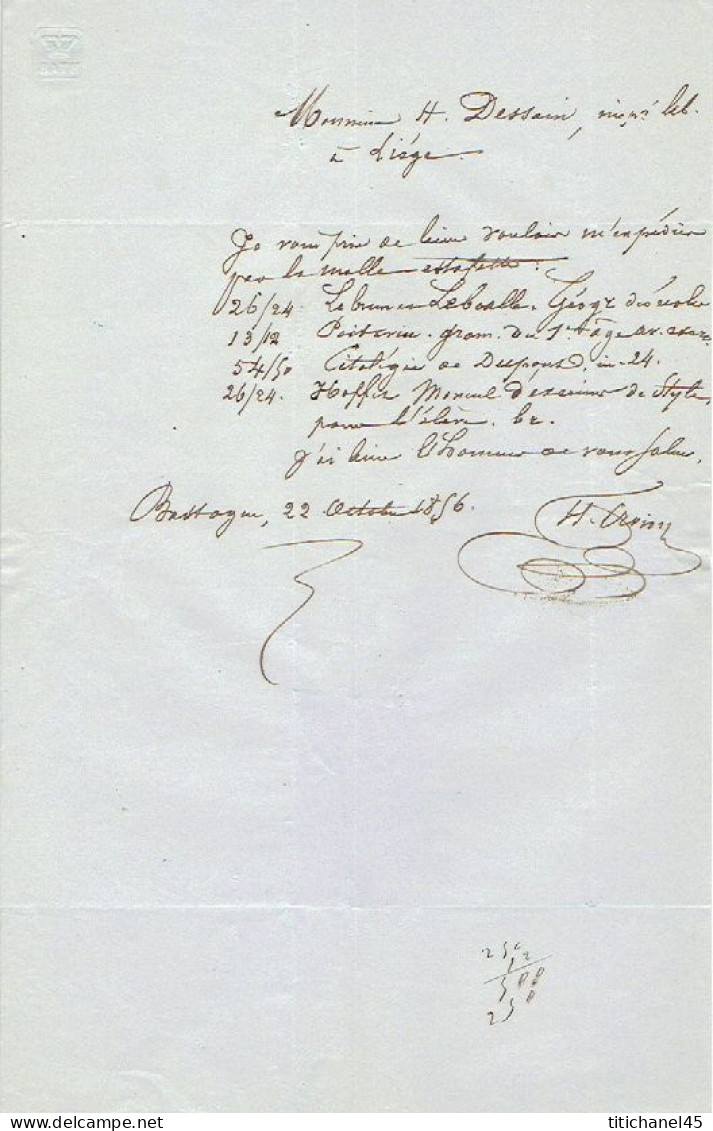 BATH
Monsieur H. Dessain, impr lib.
à Liége.
Je vous prie de bien vouloir m'expédier
par la malle estafette:
26/24 Lebrun et Lebealle. Géogr des écoles
13/12 Poitevin. gram. du 1er âge av. exerc.
54/50 Citolégie de Dupont, in-24.
26/24. Manuel d'exercices de style,
pour l'élève. br.
J'ai bien l'honneur de vous saluer,
Bastogne, 22 Octobre 1856.
H.
500
250
titichanel45